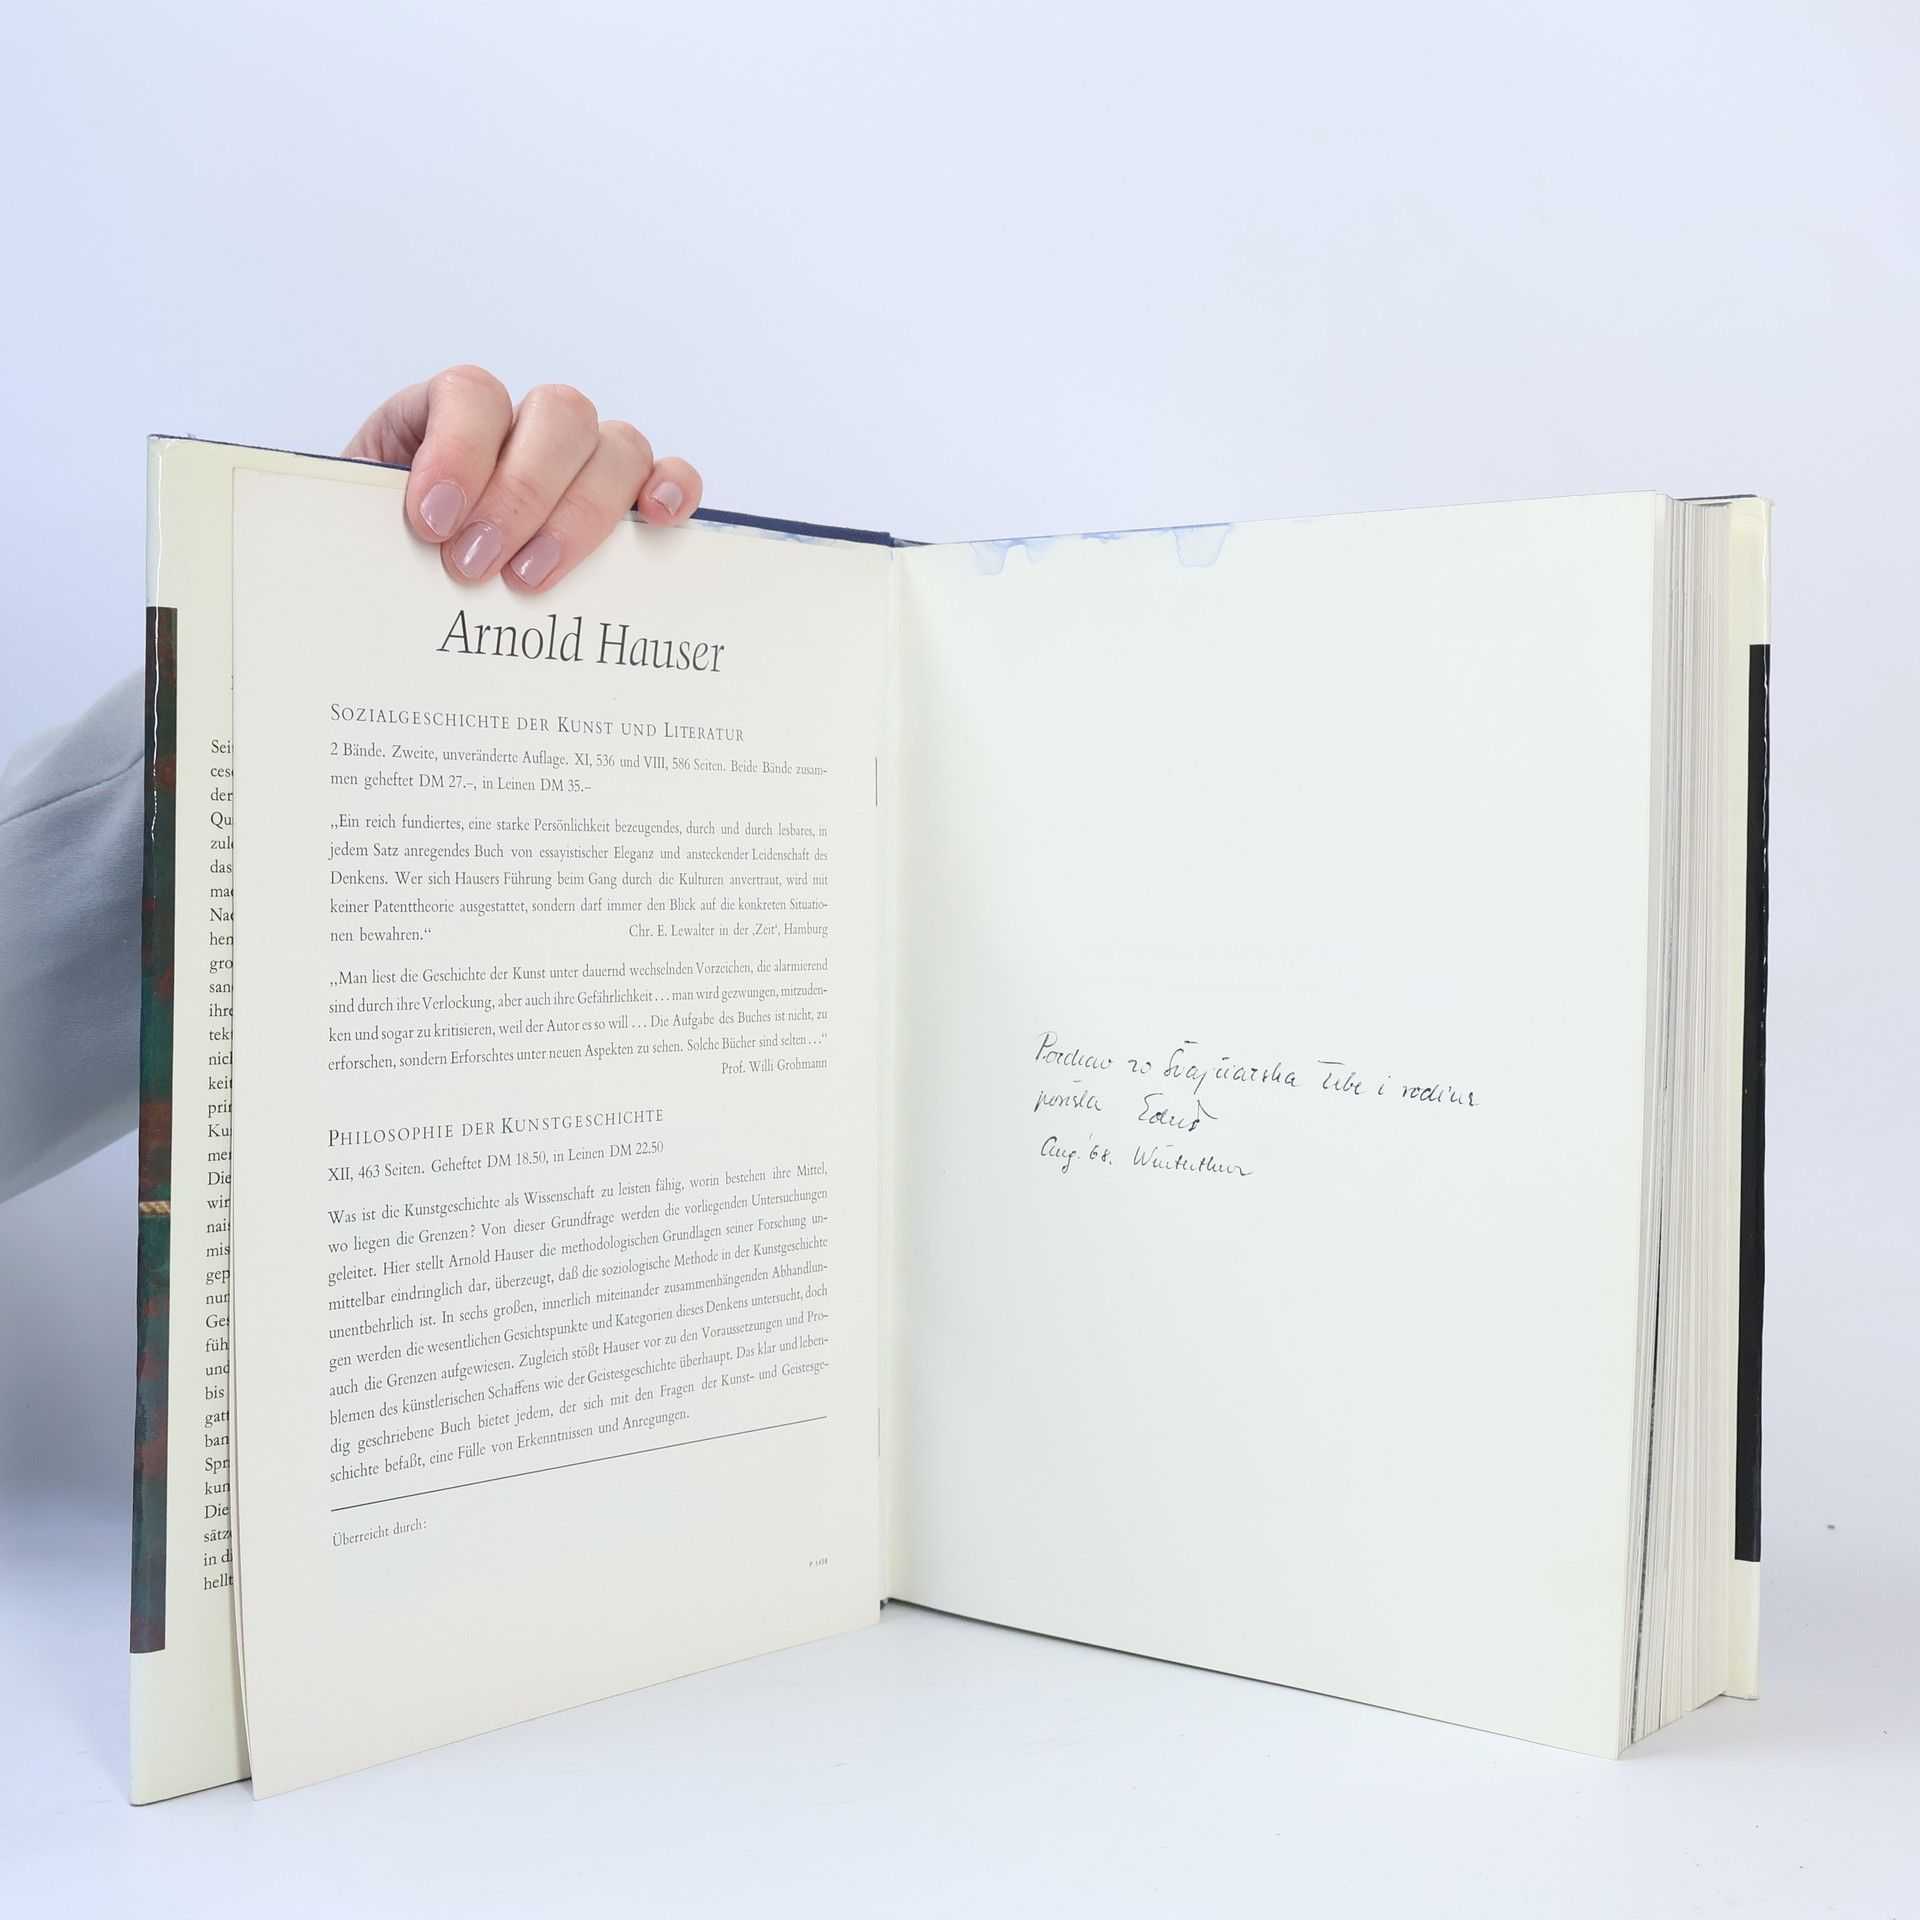 Arnold Hauser
SOZIALGESCHICHTE DER KUNST UND LITERATUR
2 Bände. Zweite, unveränderte Auflage. XI, 536 und VIII, 586 Seiten. Beide Bände zusam-
men geheftet DM 27.–, in Leinen DM 35.–
„Ein reich fundiertes, eine starke Persönlichkeit bezeugendes, durch und durch lesbares, in
jedem Satz anregendes Buch von essayistischer Eleganz und ansteckender Leidenschaft des
Denkens. Wer sich Hausers Führung beim Gang durch die Kulturen anvertraut, wird mit
keiner Patenttheorie ausgestattet, sondern darf immer den Blick auf die konkreten Situatio-
nen bewahren.“ Chr. E. Lewalter in der ‚Zeit‘, Hamburg
„Man liest die Geschichte der Kunst unter dauernd wechselnden Vorzeichen, die alarmierend
sind durch ihre Verlockung, aber auch ihre Gefährlichkeit ... man wird gezwungen, mitzuden-
ken und sogar zu kritisieren, weil der Autor es so will ... Die Aufgabe des Buches ist nicht, zu
erforschen, sondern Erforschtes unter neuen Aspekten zu sehen. Solche Bücher sind selten ...“
Prof. Willi Grohmann
PHILOSOPHIE DER KUNSTGESCHICHTE
XII, 463 Seiten. Geheftet DM 18.50, in Leinen DM 22.50
Was ist die Kunstgeschichte als Wissenschaft zu leisten fähig, worin bestehen ihre Mittel,
wo liegen die Grenzen? Von dieser Grundfrage werden die vorliegenden Untersuchungen
geleitet. Hier stellt Arnold Hauser die methodologischen Grundlagen seiner Forschung un-
mittelbar eindringlich dar, überzeugt, daß die soziologische Methode in der Kunstgeschichte
unentbehrlich ist. In sechs großen, innerlich miteinander zusammenhängenden Abhandlun-
gen werden die wesentlichen Gesichtspunkte und Kategorien dieses Denkens untersucht, doch
auch die Grenzen aufgewiesen. Zugleich stößt Hauser vor zu den Voraussetzungen und Pro-
blemen des künstlerischen Schaffens wie der Geistesgeschichte überhaupt. Das klar und leben-
dig geschriebene Buch bietet jedem, der sich mit den Fragen der Kunst- und Geistesge-
schichte befaßt, eine Fülle von Erkenntnissen und Anregungen.
Überreicht durch:
P 1458
Pozdrav zo Švajčiarska Tebe i rodine
posiela
Aug. '68. Winterthur